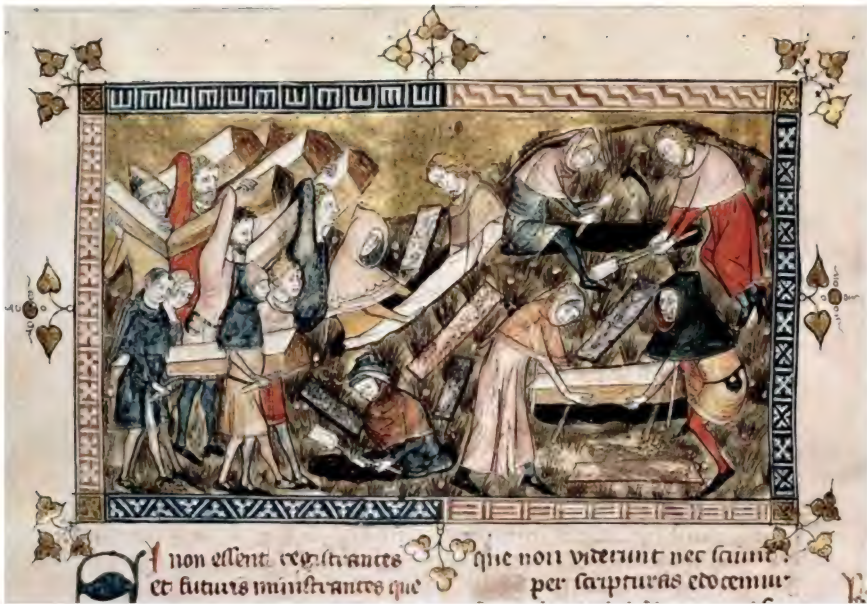 I non essent registrantes
et futuris ministrantes que
que non viderunt nec sciunt
per scripturas edocemur